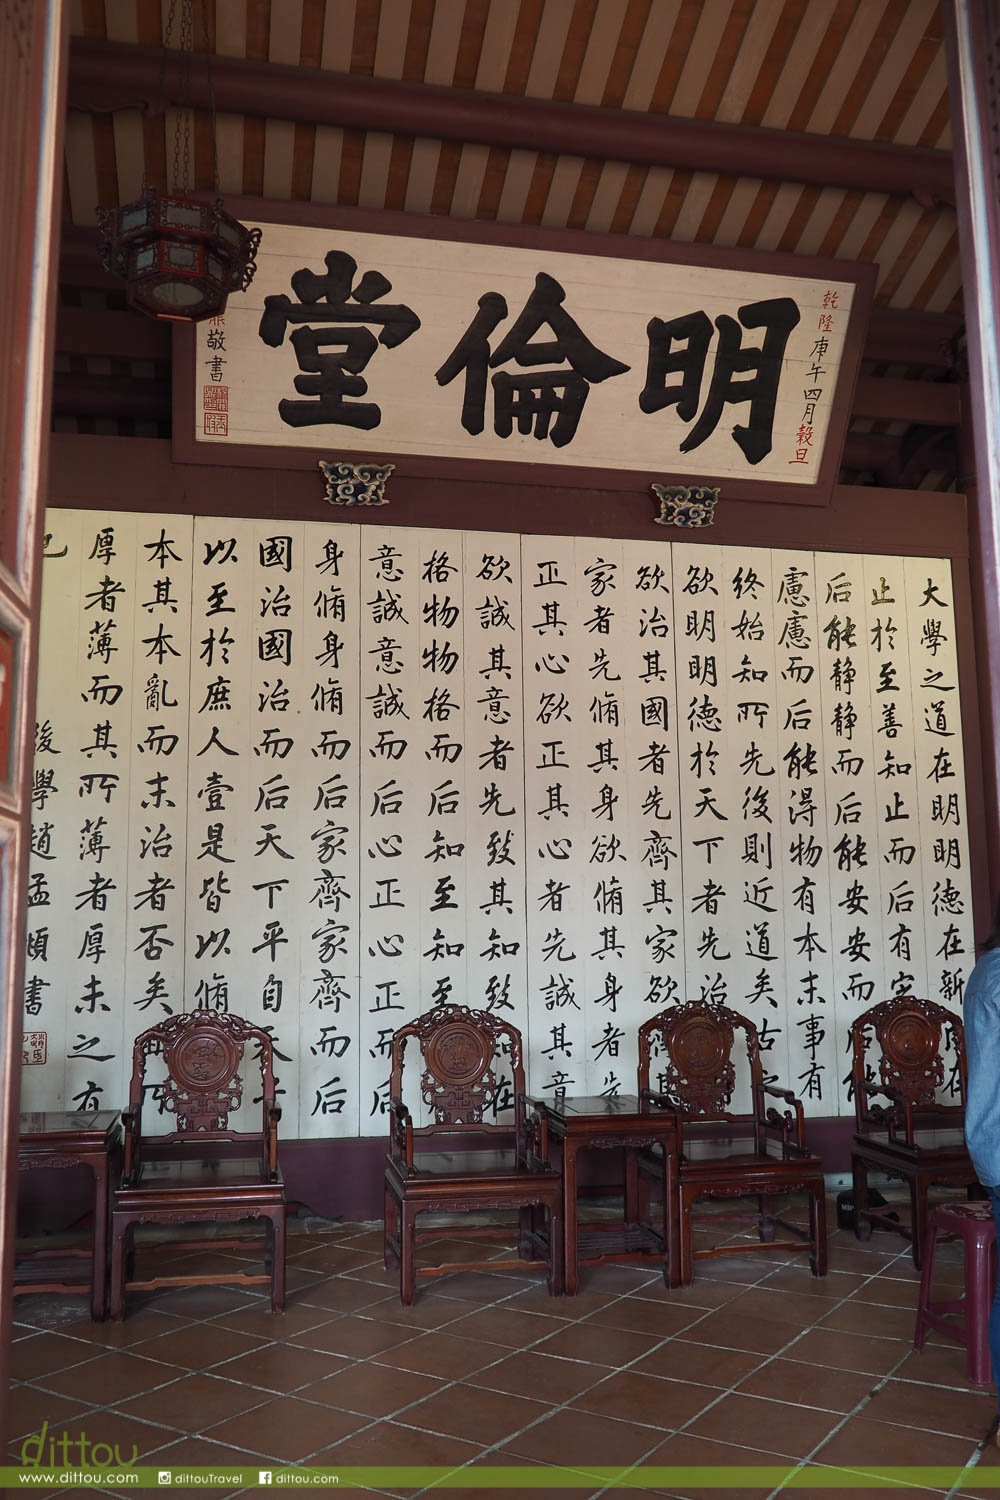 明倫堂
乾隆庚午四月穀旦
敬書
大學之道在明明德在新
止於至善知止而后有定
后能静静而后能安安而后能
慮慮而后能得物有本末事有
終始知所先後則近道矣古之
欲明明德於天下者先治
欲治其國者先齊其家欲齊其
家者先脩其身欲脩其身者先
正其心欲正其心者先誠其意
欲誠其意者先致其知致知在
格物物格而后知至知至
意誠意誠而后心正心正而后
身脩身脩而后家齊家齊而后
國治國治而后天下平自天子
以至於庶人壹是皆以脩
本其本亂而末治者否矣其所
厚者薄而其所薄者厚未之有
也
後學趙孟頫書
dittou
www.dittou.com dittouTravel dittou.com